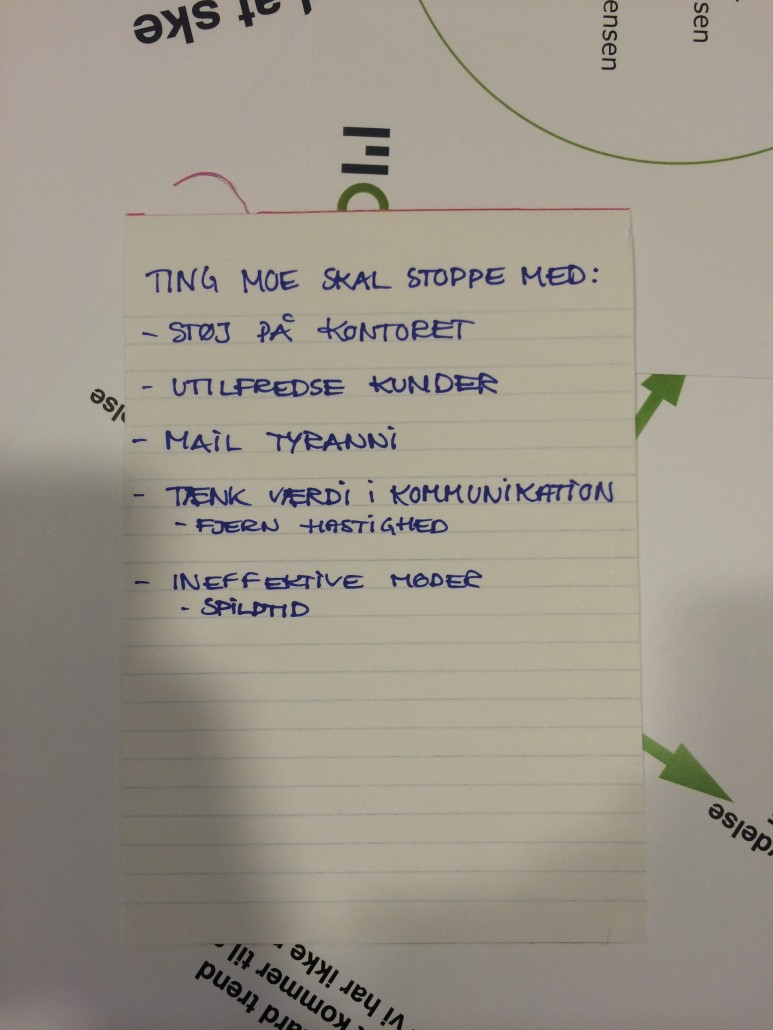 at ske
ensen
sen
TING MOE SKAL STOPPE MED:
- STØJ PÅ KONTORET
- UTILFREDSE KUNDER
- MAIL TYRANNI
- TÆNK VÆRDI I KOMMUNIKATION
- FJERN HASTIGHED
- INEFFEKTIVE MØDER
- SPILDTID
else
delse
vi har ikke
kommer til
ard trend